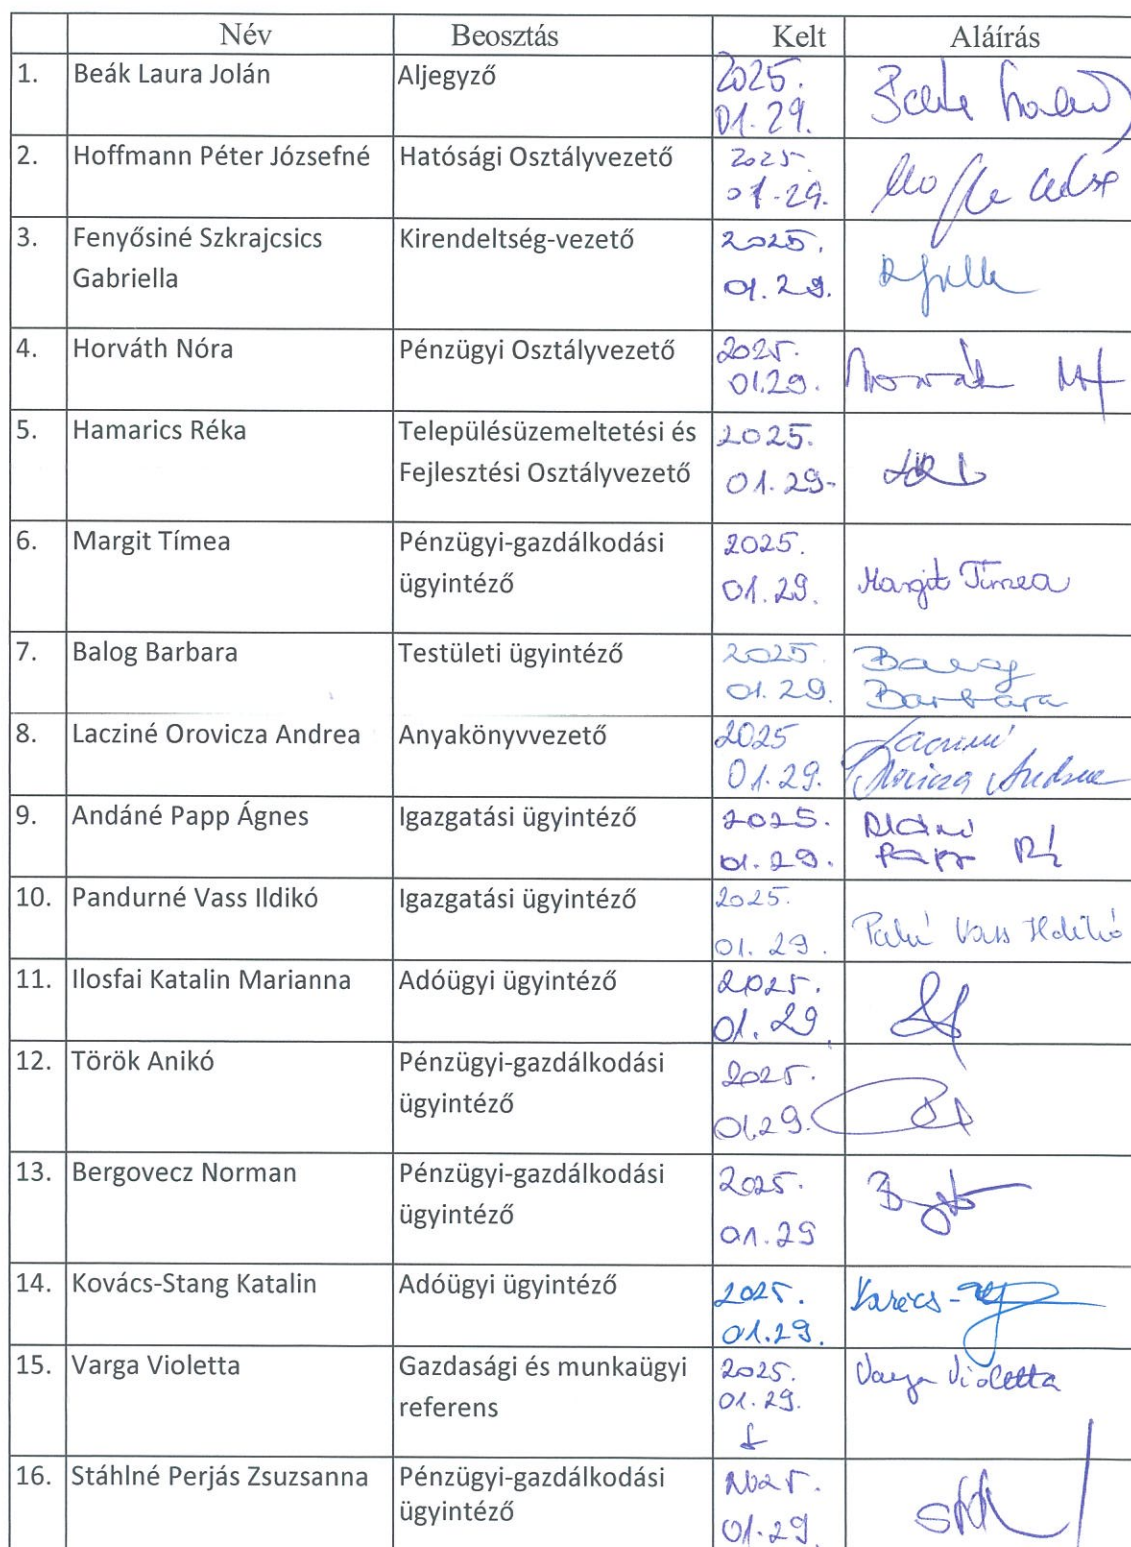 Név Beosztás Kelt Aláírás
1. Beák Laura Jolán Aljegyző 2025.
01.29.
2. Hoffmann Péter Józsefné Hatósági Osztályvezető 2025.
01.29.
3. Fenyősiné Szkrajcsics Kirendeltség-vezető 2025.
Gabriella 01.29.
4. Horváth Nóra Pénzügyi Osztályvezető 2025.
01.29.
5. Hamarics Réka Településüzemeltetési és 2025.
Fejlesztési Osztályvezető 01.29-
6. Margit Tímea Pénzügyi-gazdálkodási 2025.
ügyintéző 01.29. Margit Tímea
7. Balog Barbara Testületi ügyintéző 2025. Balog
01.29. Barbara
8. Lacziné Orovicza Andrea Anyakönyvvezető 2025 Lacziné
01.29. Orovicza Andrea
9. Andáné Papp Ágnes Igazgatási ügyintéző 2025.
01.29. Papp
10. Pandurné Vass Ildikó Igazgatási ügyintéző 2025.
01.29. Vass Ildikó
11. Ilosfai Katalin Marianna Adóügyi ügyintéző 2025.
01.29.
12. Török Anikó Pénzügyi-gazdálkodási 2025.
ügyintéző 01.29.
13. Bergovecz Norman Pénzügyi-gazdálkodási 2025.
ügyintéző 01.29
14. Kovács-Stang Katalin Adóügyi ügyintéző 2025. Kovács-
01.29.
15. Varga Violetta Gazdasági és munkaügyi 2025. Varga Violetta
referens 01.29.
16. Stáhlné Perjás Zsuzsanna Pénzügyi-gazdálkodási 2025.
ügyintéző 01.29.